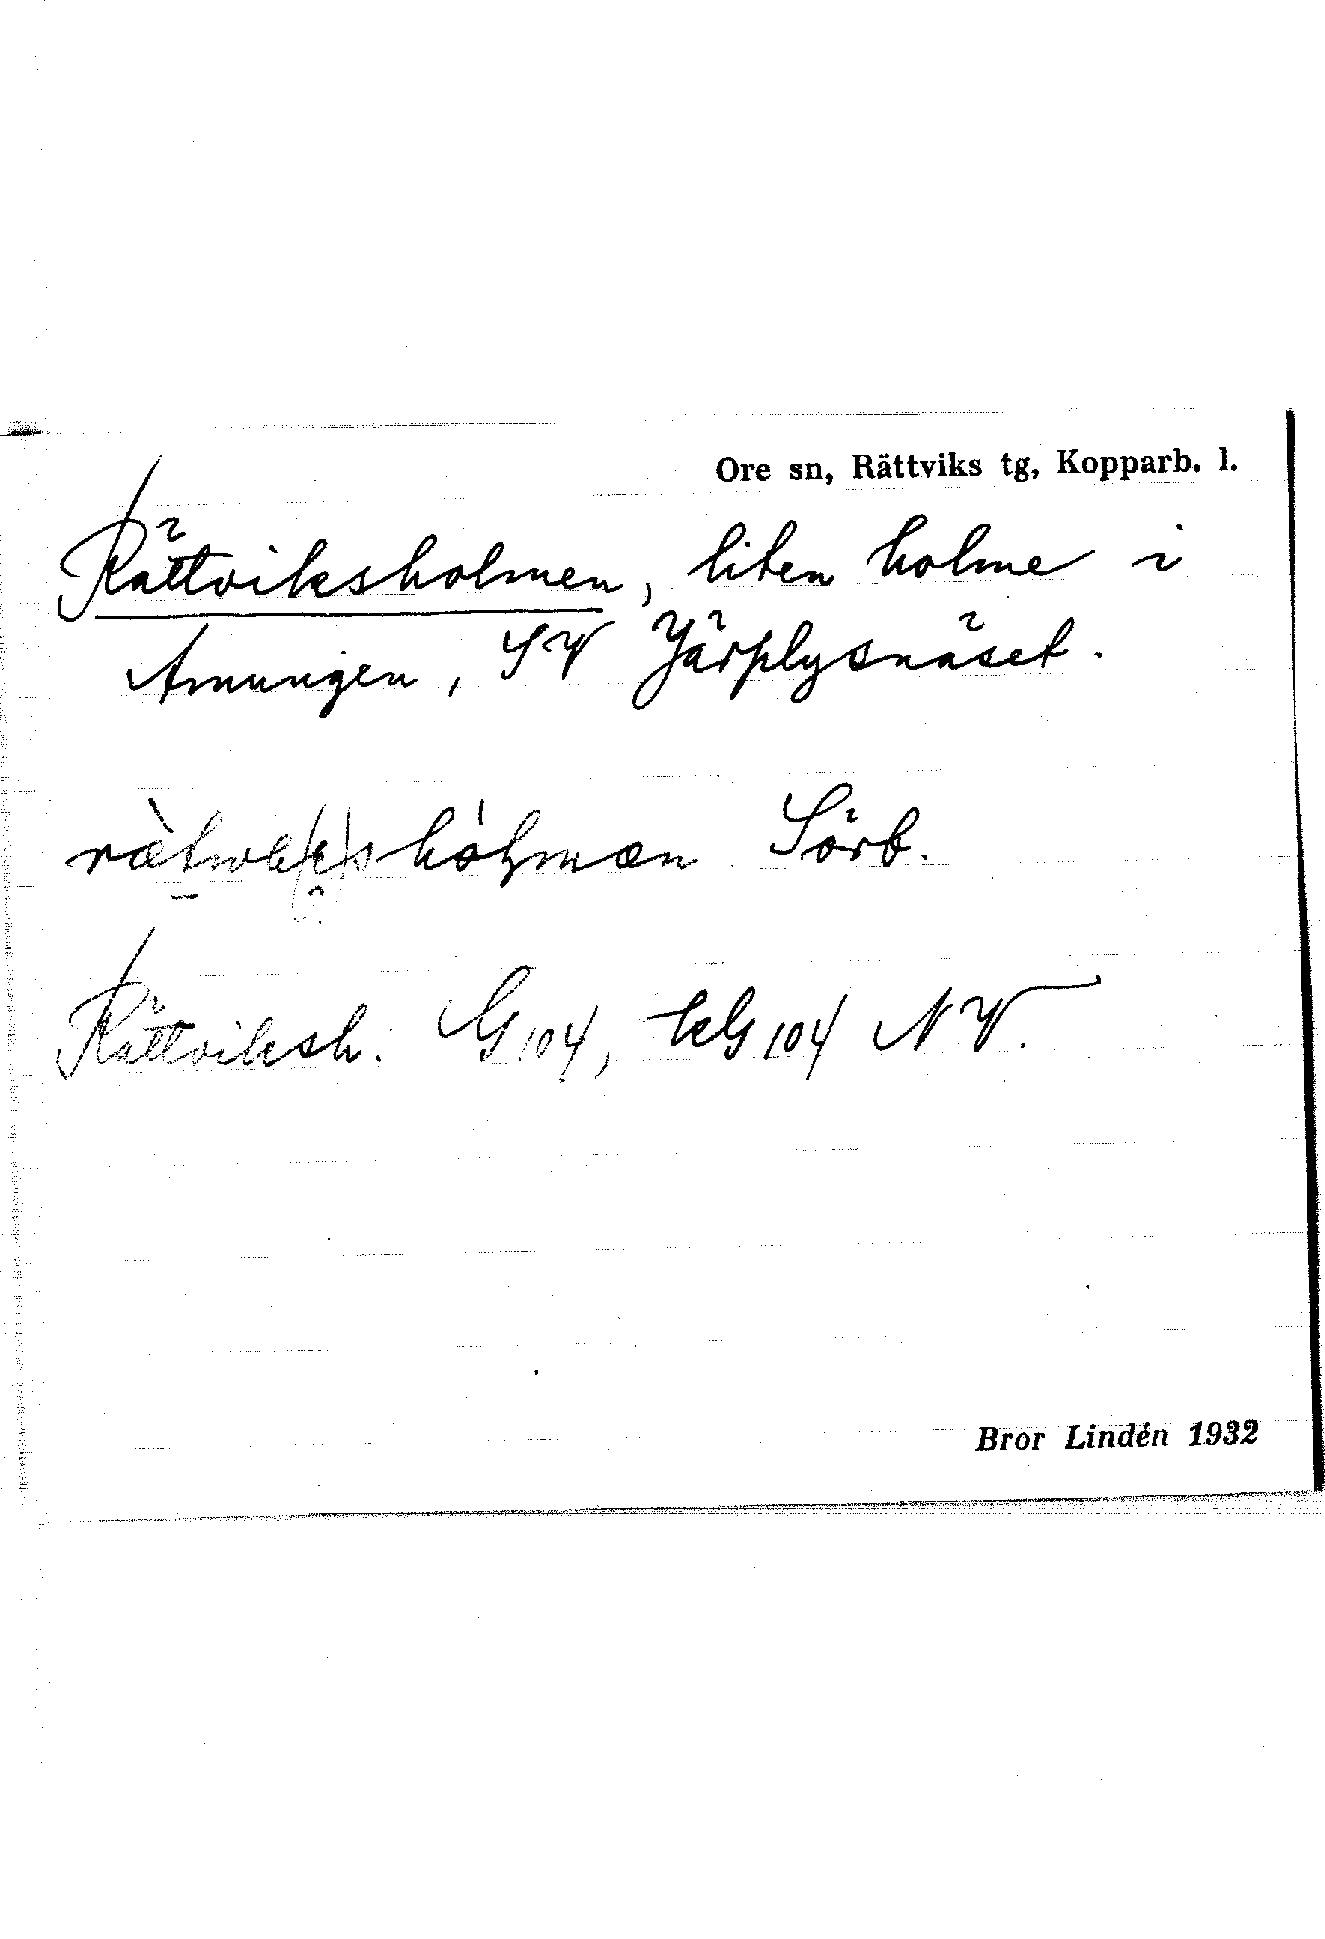 Ore sn, Rättviks tg, Kopparb. l.
Rättviksholmen, liten holme i
Amungen, SV Järplysnäset.
Sörb.
Rättviksh. G 104, kG 104 NV.
Bror Lindén 1932